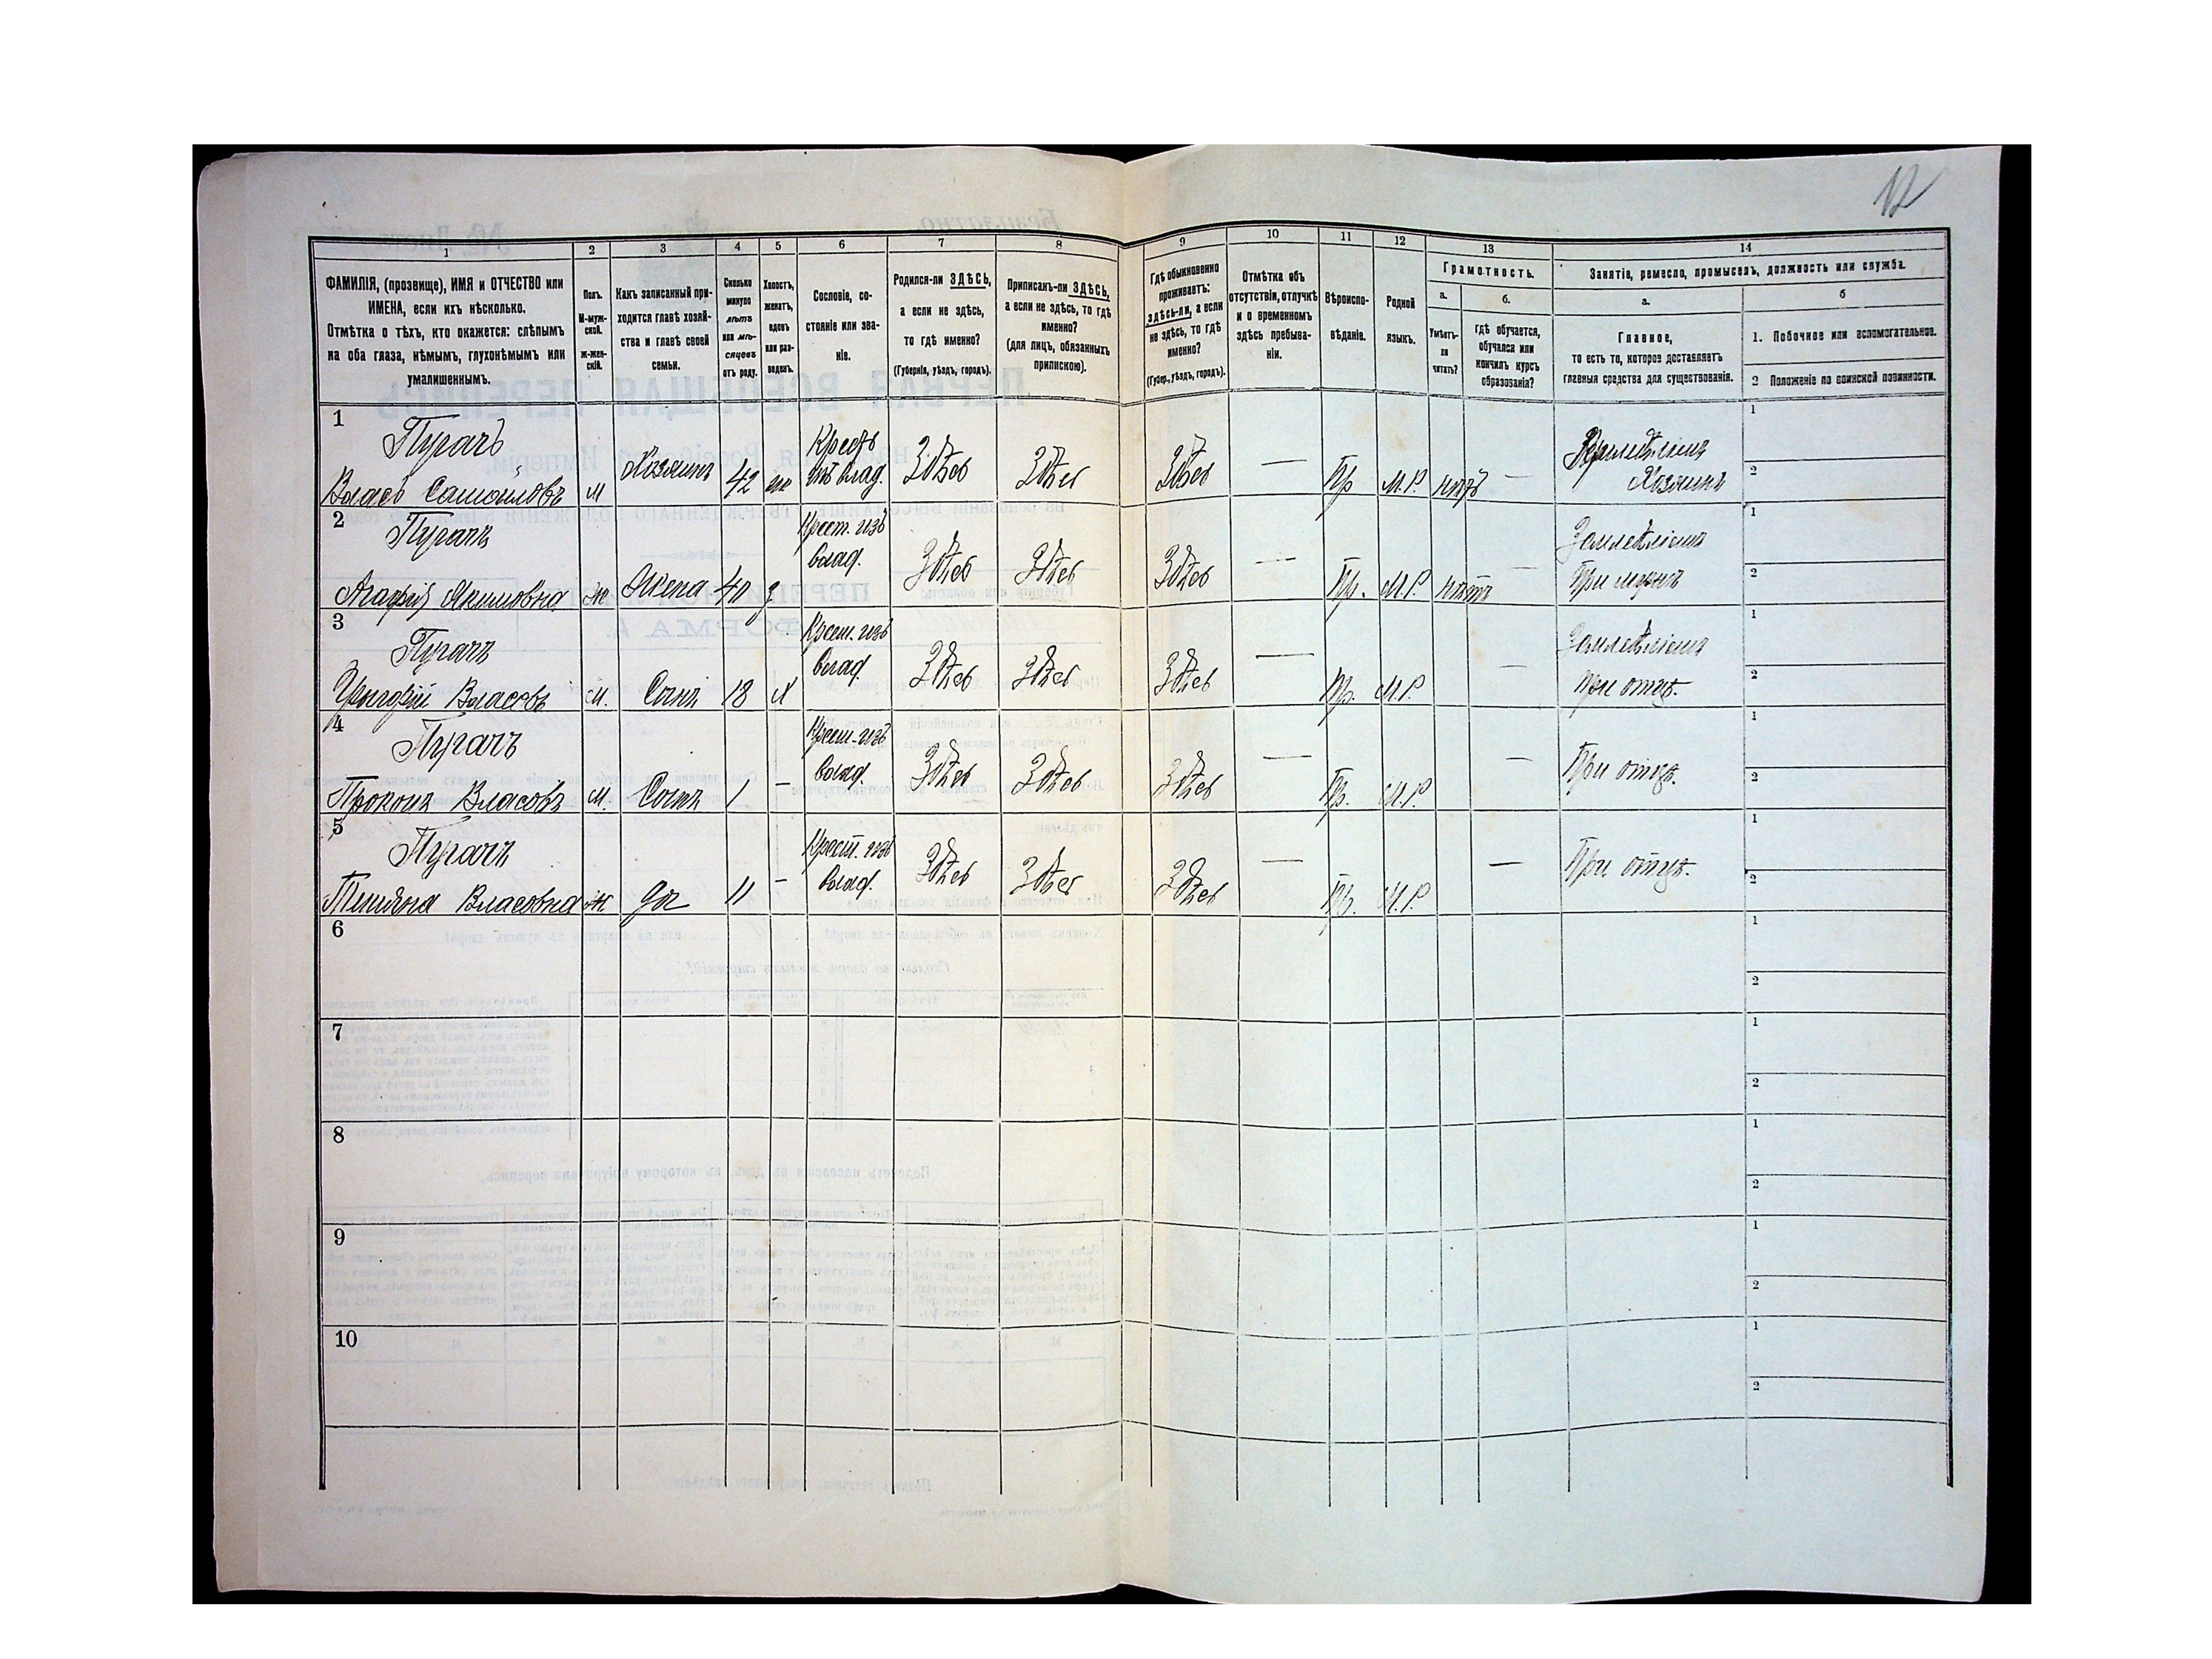 12
1 2 3 4 5 6 7 8 9 10 11 12 13 14
ФАМИЛІЯ, (прозвище), ИМЯ и ОТЧЕСТВО или
ИМЕНА, если ихъ нѣсколько.
Отмѣтка о тѣхъ, кто окажется: слѣпымъ
на оба глаза, нѣмымъ, глухонѣмымъ или
умалишеннымъ.
Полъ.
М-муж-
ской.
ж-жен-
скій.
Какъ записанный при-
ходится главѣ хозяй-
ства и главѣ своей
семьи.
Сколько
минуло
лѣтъ
или мѣ-
сяцевъ
отъ роду.
Холостъ,
женатъ,
вдовъ
или раз-
веденъ.
Сословіе, со-
стояніе или зва-
ніе.
Родился-ли ЗДѢСЬ,
а если не здѣсь,
то гдѣ именно?
(Губернія, уѣздъ, городъ).
Приписанъ-ли ЗДѢСЬ,
а если не здѣсь, то гдѣ
именно?
(для лицъ, обязанныхъ
припискою).
Гдѣ обыкновенно
проживаетъ:
здѣсь-ли, а если
не здѣсь, то гдѣ
именно?
(Губер., уѣздъ, городъ).
Отмѣтка объ
отсутствіи, отлучкѣ
и о временномъ
здѣсь пребыва-
ніи.
Вѣроиспо-
вѣданіе.
Родной
языкъ.
Грамотность.
а.
Умѣетъ-
ли
читать?
б.
Гдѣ обучается,
обучался или
кончилъ курсъ
образованія?
Занятія, ремесло, промыселъ, должность или служба.
а.
Главное,
то есть то, которое доставляетъ
главныя средства для существованія.
б
1. Побочное или вспомогательное.
2 Положеніе по воинской повинности.
1
Пугачъ
Власъ Самойловъ М Хозяинъ 42 Крестъ
изъ влад. Здѣсь Здѣсь Здѣсь — Пр М.Р. нѣтъ —
Хозяинъ
1
2
2
Пугачъ
Агафія Якимовна Ж Жена 40 з Крест. изъ
влад. Здѣсь Здѣсь Здѣсь — Пр. М.Р. нѣтъ —
При мужѣ
1
2
3
Пугачъ
Григорій Власовъ М. Сынъ 18 Х Крест. изъ
влад. Здѣсь Здѣсь Здѣсь — Пр. М.Р. —
при отцѣ.
1
2
4
Пугачъ
Прокопъ Власовъ М. Сынъ 1 — Крест. изъ
влад. Здѣсь Здѣсь Здѣсь — Пр. М.Р. —
При отцѣ.
1
2
5
Пугачъ
Татьяна Власовна Ж дч 11 — Крест. изъ
влад. Здѣсь Здѣсь Здѣсь — Пр. М.Р. —
При отцѣ.
1
2
6
1
2
7
1
2
8
1
2
9
1
2
10
1
2